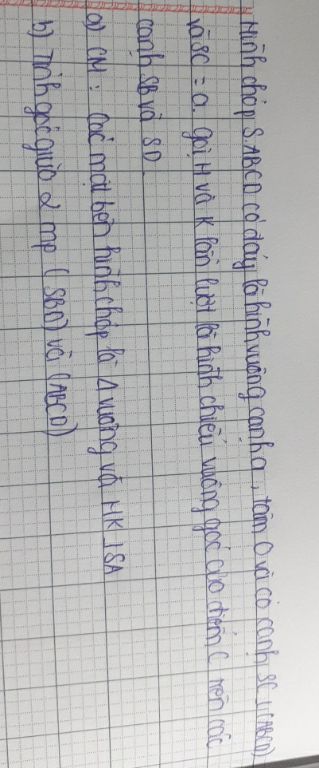 Hình chóp S.ABCD có đáy là hình vuông cạnh a, tâm O và có cạnh SC⊥(ABCD)
và SC = a. gọi H và K lần lượt là hình chiếu vuông góc của điểm C trên các
cạnh SB và SD.
a) CM: Các mặt bên hình chóp là Δ vuông và HK⊥SA
b) Tính góc giữa 2 mp (SBD) và (ABCD)